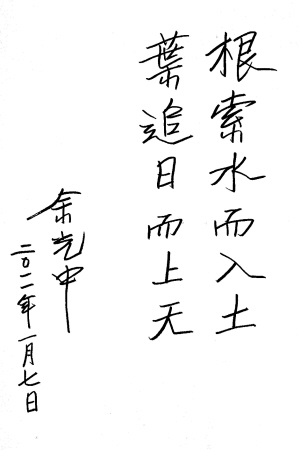 根索水而入土
葉追日而上天
余光中
二〇一一年一月七日